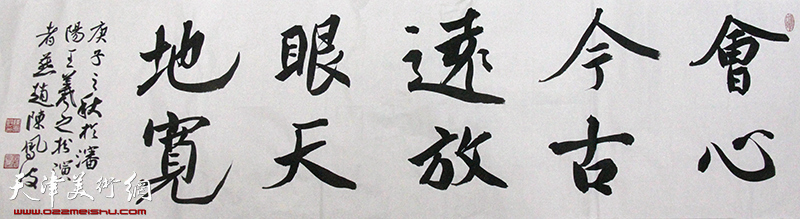 會心
今古
遠放
眼天
地寬
庚子之秋於瀋
陽王羲之於瀋
者燕趙陳鳳友
天津美術網
www.022meishu.com